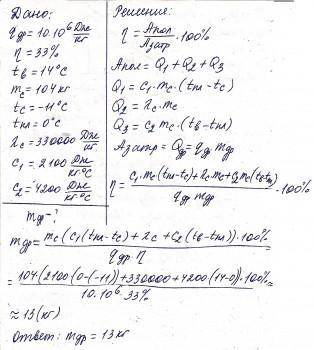 Дано:
qдр = 10·10⁶ Дж/кг
η = 33%
tв = 14°C
mc = 104 кг
tc = -11°C
tпл = 0°C
λc = 330000 Дж/кг
c₁ = 2100 Дж/кг·°C
c₂ = 4200 Дж/кг·°C
mдр - ?
Решение:
η = Aпол/Aзатр · 100%
Aпол = Q₁ + Q₂ + Q₃
Q₁ = c₁·mc·(tпл - tc)
Q₂ = λc·mc
Q₃ = c₂ mc·(tв - tпл)
Aзатр = Qдр = qдр mдр
η = c₁mc(tпл - tc) + λc mc + c₂mc(tв - tпл) / qдр mдр · 100%
mдр = mc(c₁(tпл - tc) + λc + c₂(tв - tпл))·100% / qдр η =
= 104(2100(0-(-11)) + 330000 + 4200(14-0))·100% / 10·10⁶·33% ≈
≈ 13 (кг)
Ответ: mдр = 13 кг